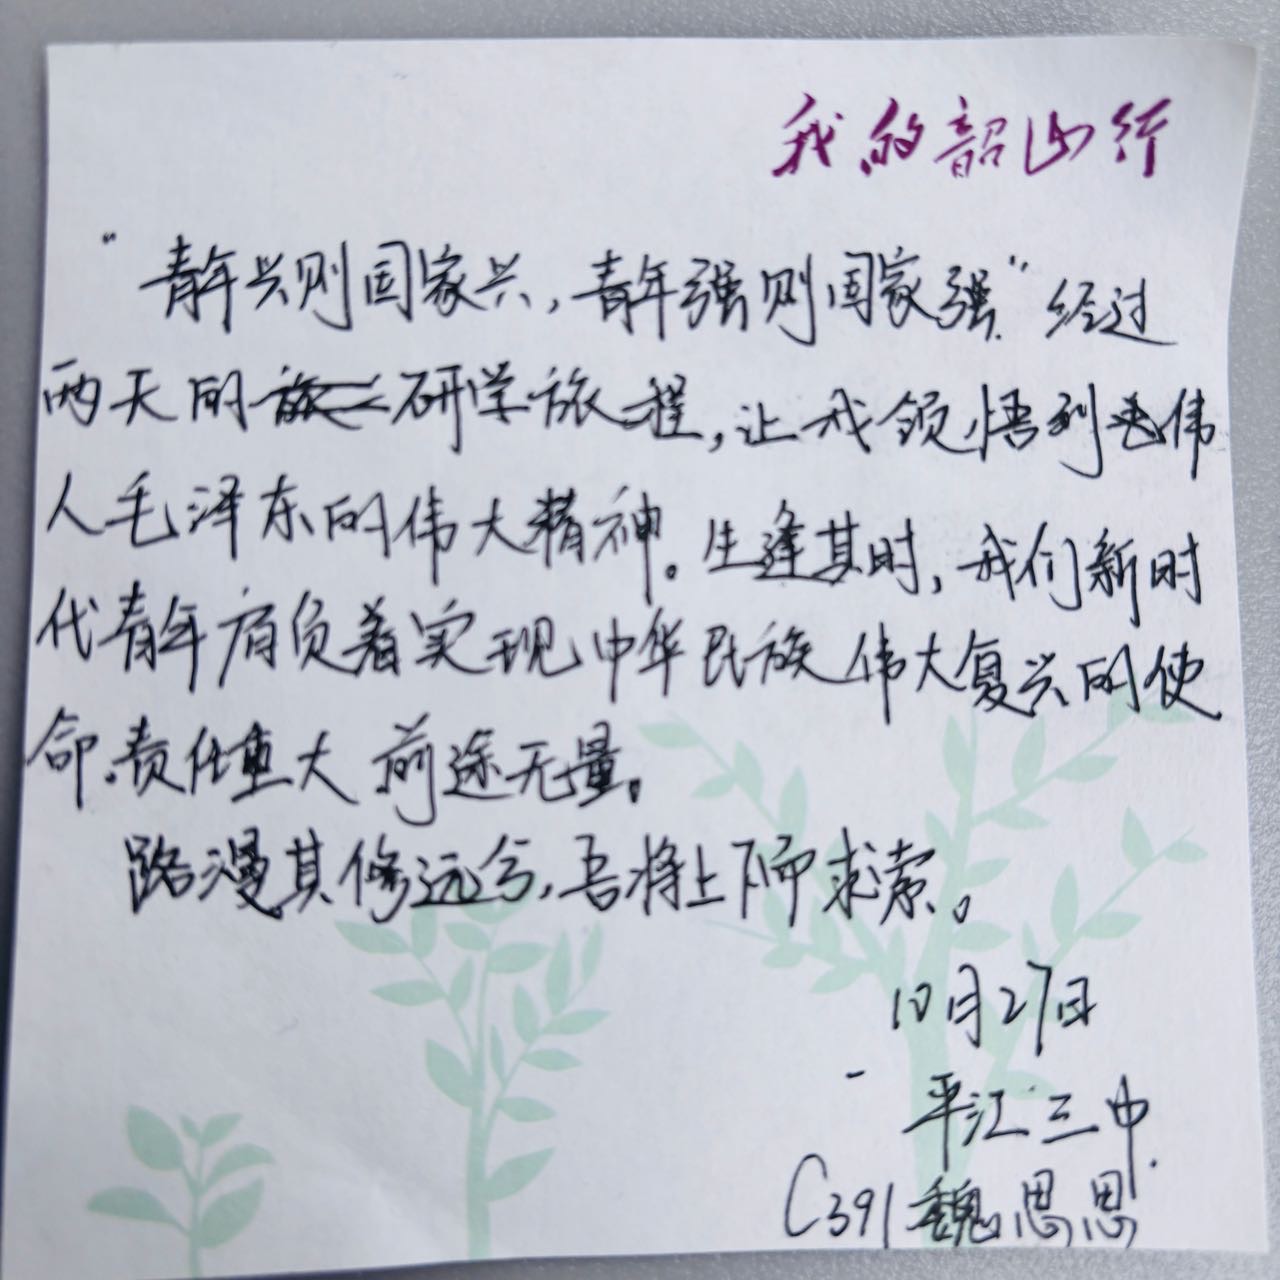 我的韶山行
“青年兴则国家兴,青年强则国家强”经过
两天的研学旅程,让我领悟到伟
人毛泽东的伟大精神。生逢其时,我们新时
代青年肩负着实现中华民族伟大复兴的使
命.责任重大 前途无量。
路漫其修远兮,吾将上下而求索。
10月27日
平江三中.
C391魏思思